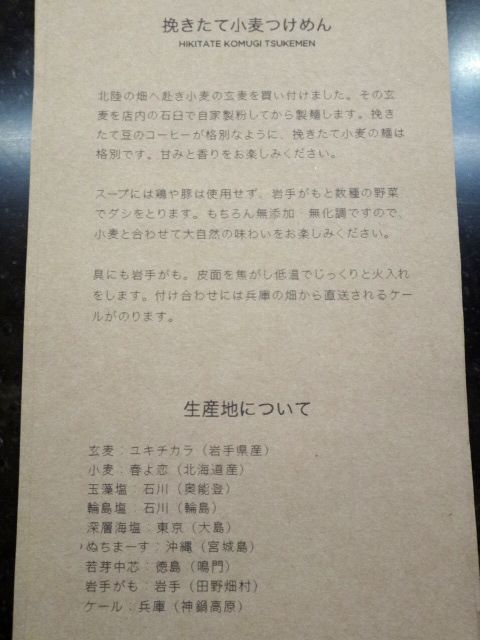 挽きたて小麦つけめん
HIKITATE KOMUGI TSUKEMEN
北陸の畑へ赴き小麦の玄麦を買い付けました。その玄
麦を店内の石臼で自家製粉してから製麺します。挽き
たて豆のコーヒーが格別なように、挽きたて小麦の麺は
格別です。甘みと香りをお楽しみください。
スープには鶏や豚は使用せず、岩手がもと数種の野菜
でダシをとります。もちろん無添加・無化調ですので、
小麦と合わせて大自然の味わいをお楽しみください。
具にも岩手がも。皮面を焦がし低温でじっくりと火入れ
をします。付け合わせには兵庫の畑から直送されるケー
ルがのります。
生産地について
玄麦：ユキチカラ（岩手県産）
小麦：春よ恋（北海道産）
玉藻塩：石川（奥能登）
輪島塩：石川（輪島）
深層海塩：東京（大島）
ぬちまーす：沖縄（宮城島）
若芽中芯：徳島（鳴門）
岩手がも：岩手（田野畑村）
ケール：兵庫（神鍋高原）